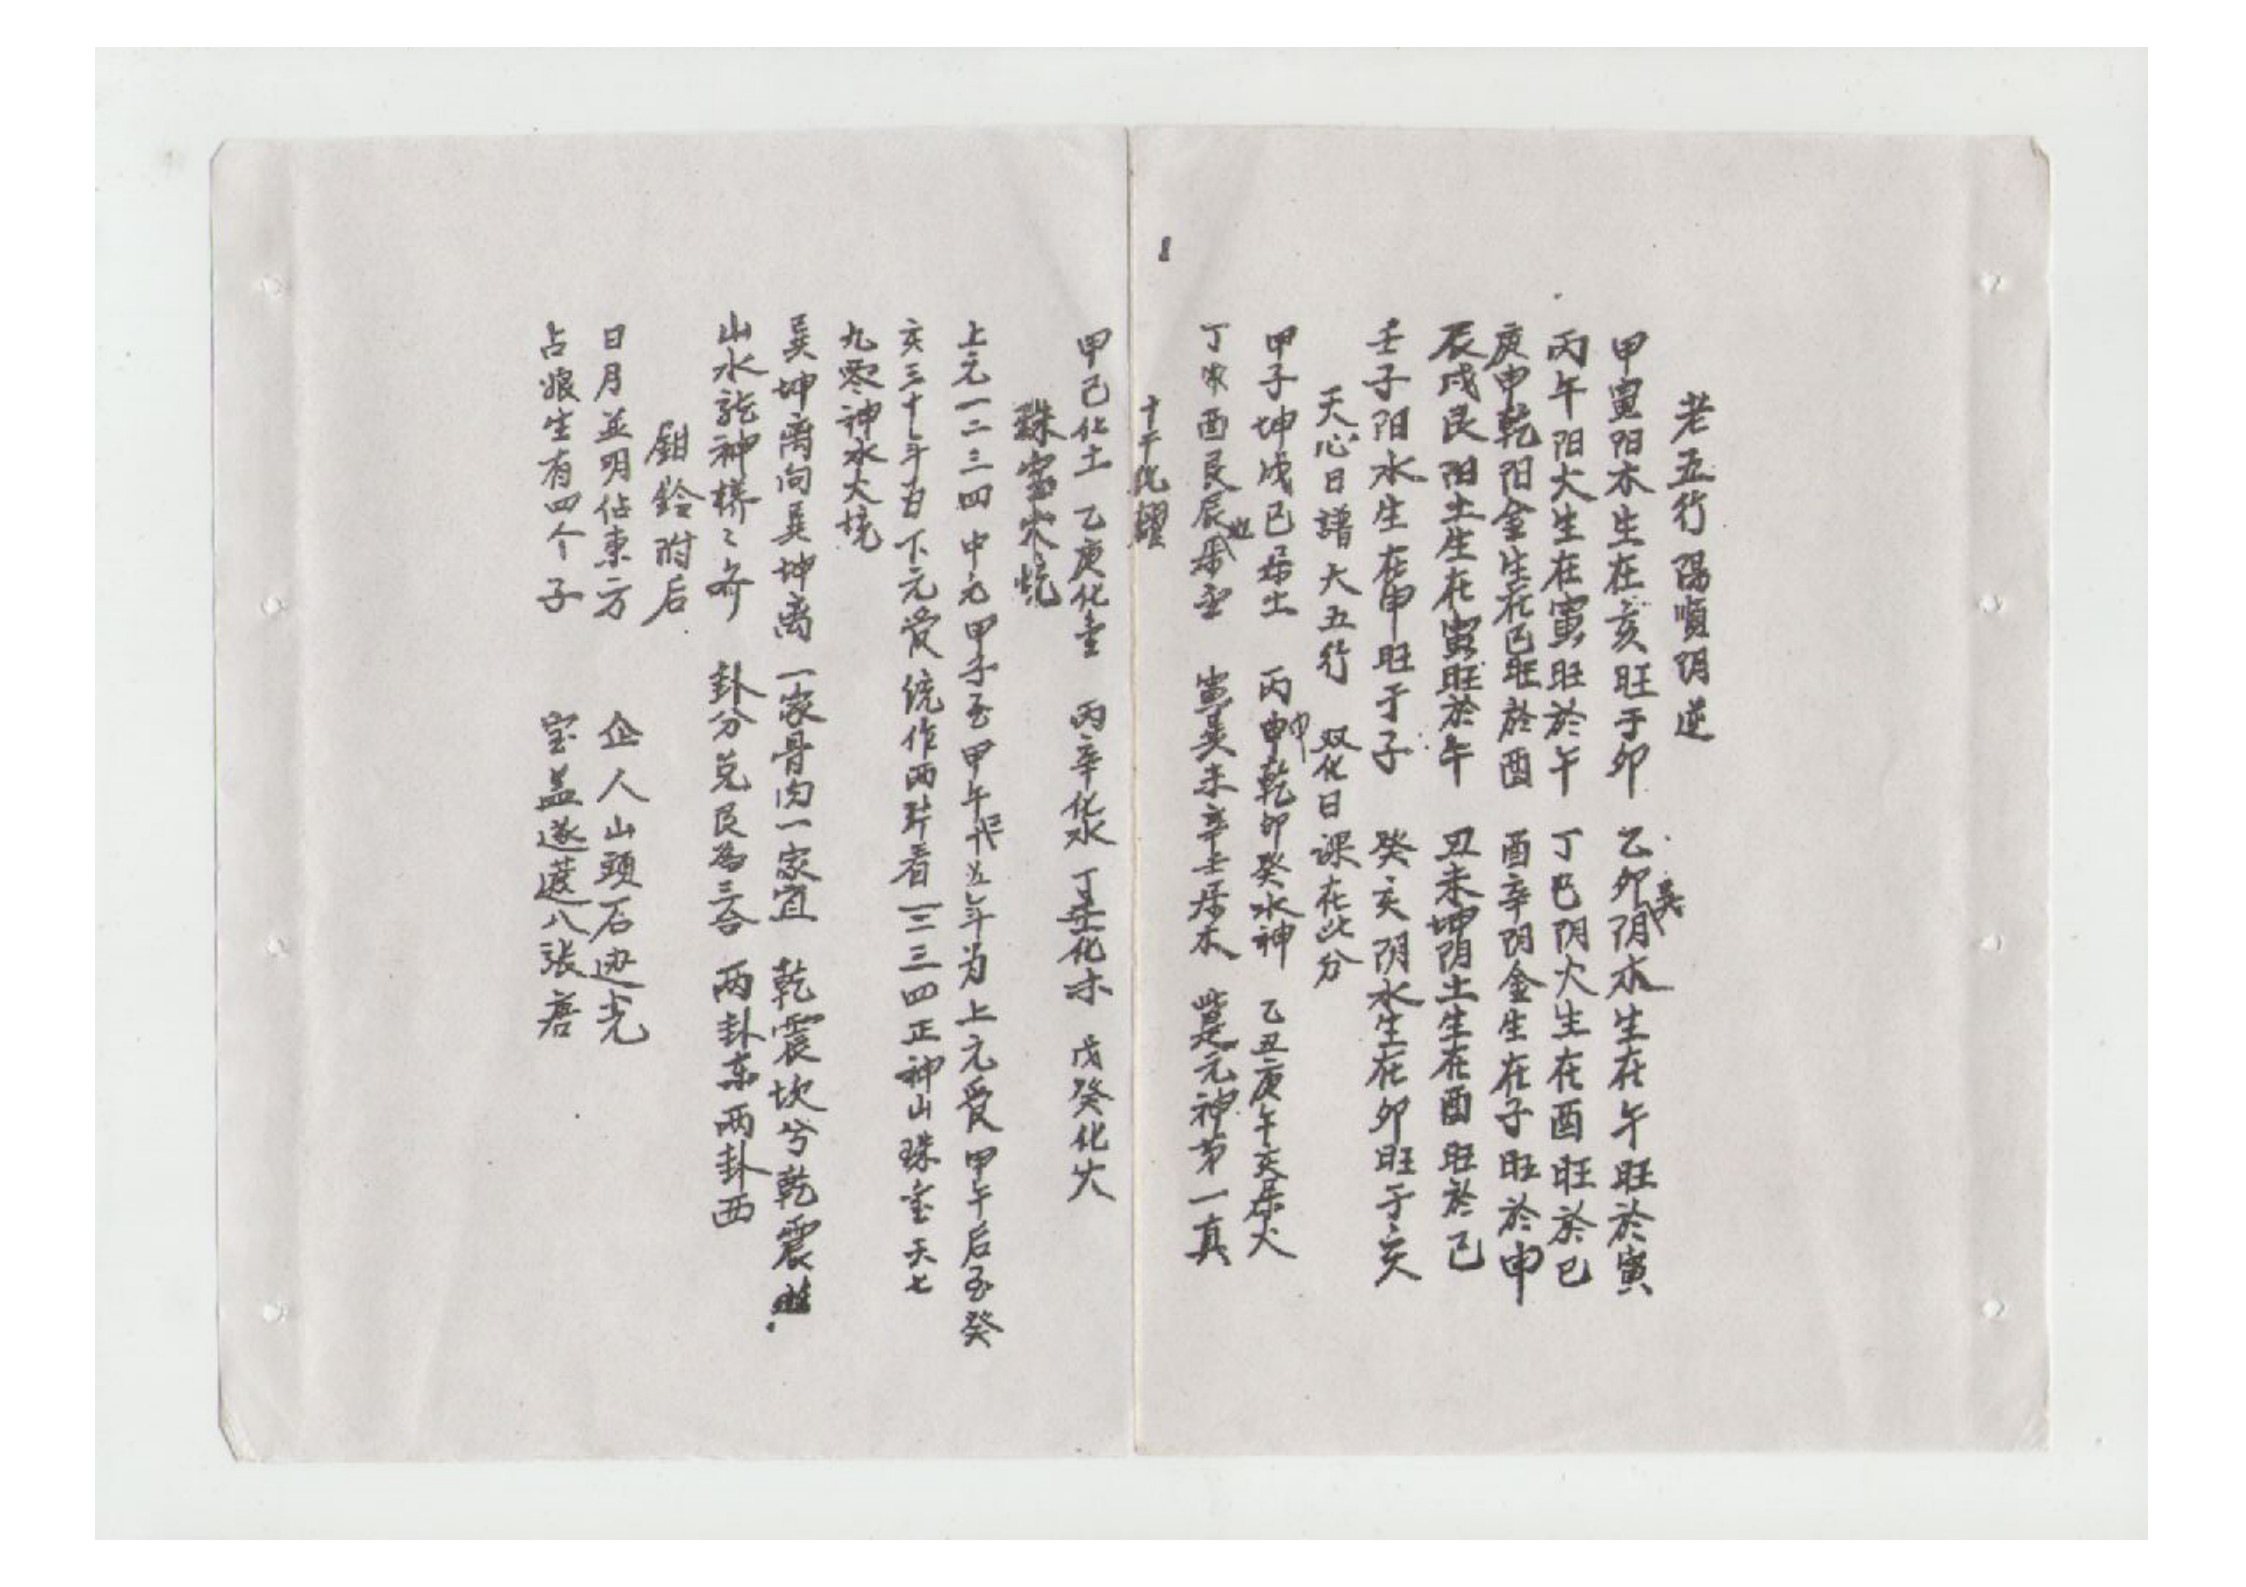 老五行 陽順阴逆
甲寅阳木生在亥旺于卯 乙卯巽阴木生在午旺於寅
丙午阳火生在寅旺於午 丁巳阴火生在酉旺於巳
庚申乾阳金生在巳旺於酉 酉辛阴金生在子旺於申
辰戌艮阳土生在寅旺於午 丑未坤阴土生在酉旺於巳
壬子阳水生在申旺于子 癸亥阴水生在卯旺于亥
天心日譜大五行 双化日课在此分
甲子坤戌巳居土 丙申乾卯癸水神 乙丑庚午亥居火
丁酉艮辰居金 寅巽未辛壬居木 元神第一真
8
十干化曜
甲己化土 乙庚化金 丙辛化水 丁壬化木 戊癸化火
珠宝火坑
上元一二三四 中元甲子至甲午 年为上元爰 甲午后至癸
亥三十年为下元爰 统作两片看 一二三四正神山珠宝 天七
九零神水火坑
巽坤离向巽坤离 一家骨肉一家宜 乾震坎兮乾震
山水龙神样々奇 卦分兑艮為三合 两卦东两卦西
鉗鈴附后
日月並明佔東方 企人山頭石边光
占娘生有四个子 宝盖遂遮八張唐